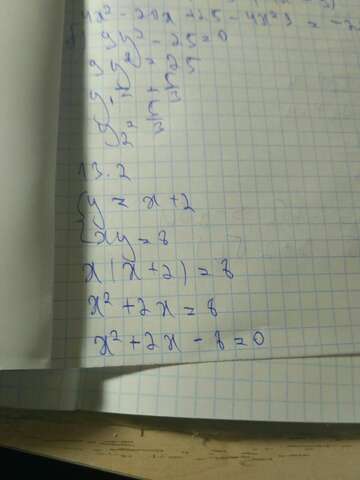 4x² - 20x + 25 - 4x² + 9 =
9y² - 25 = 0
9y² = 25
y₁ = + 5/3
y₂ = 5/3
13.2
{y = x + 2
{xy = 8
x(x + 2) = 8
x² + 2x = 8
x² + 2x - 8 = 0